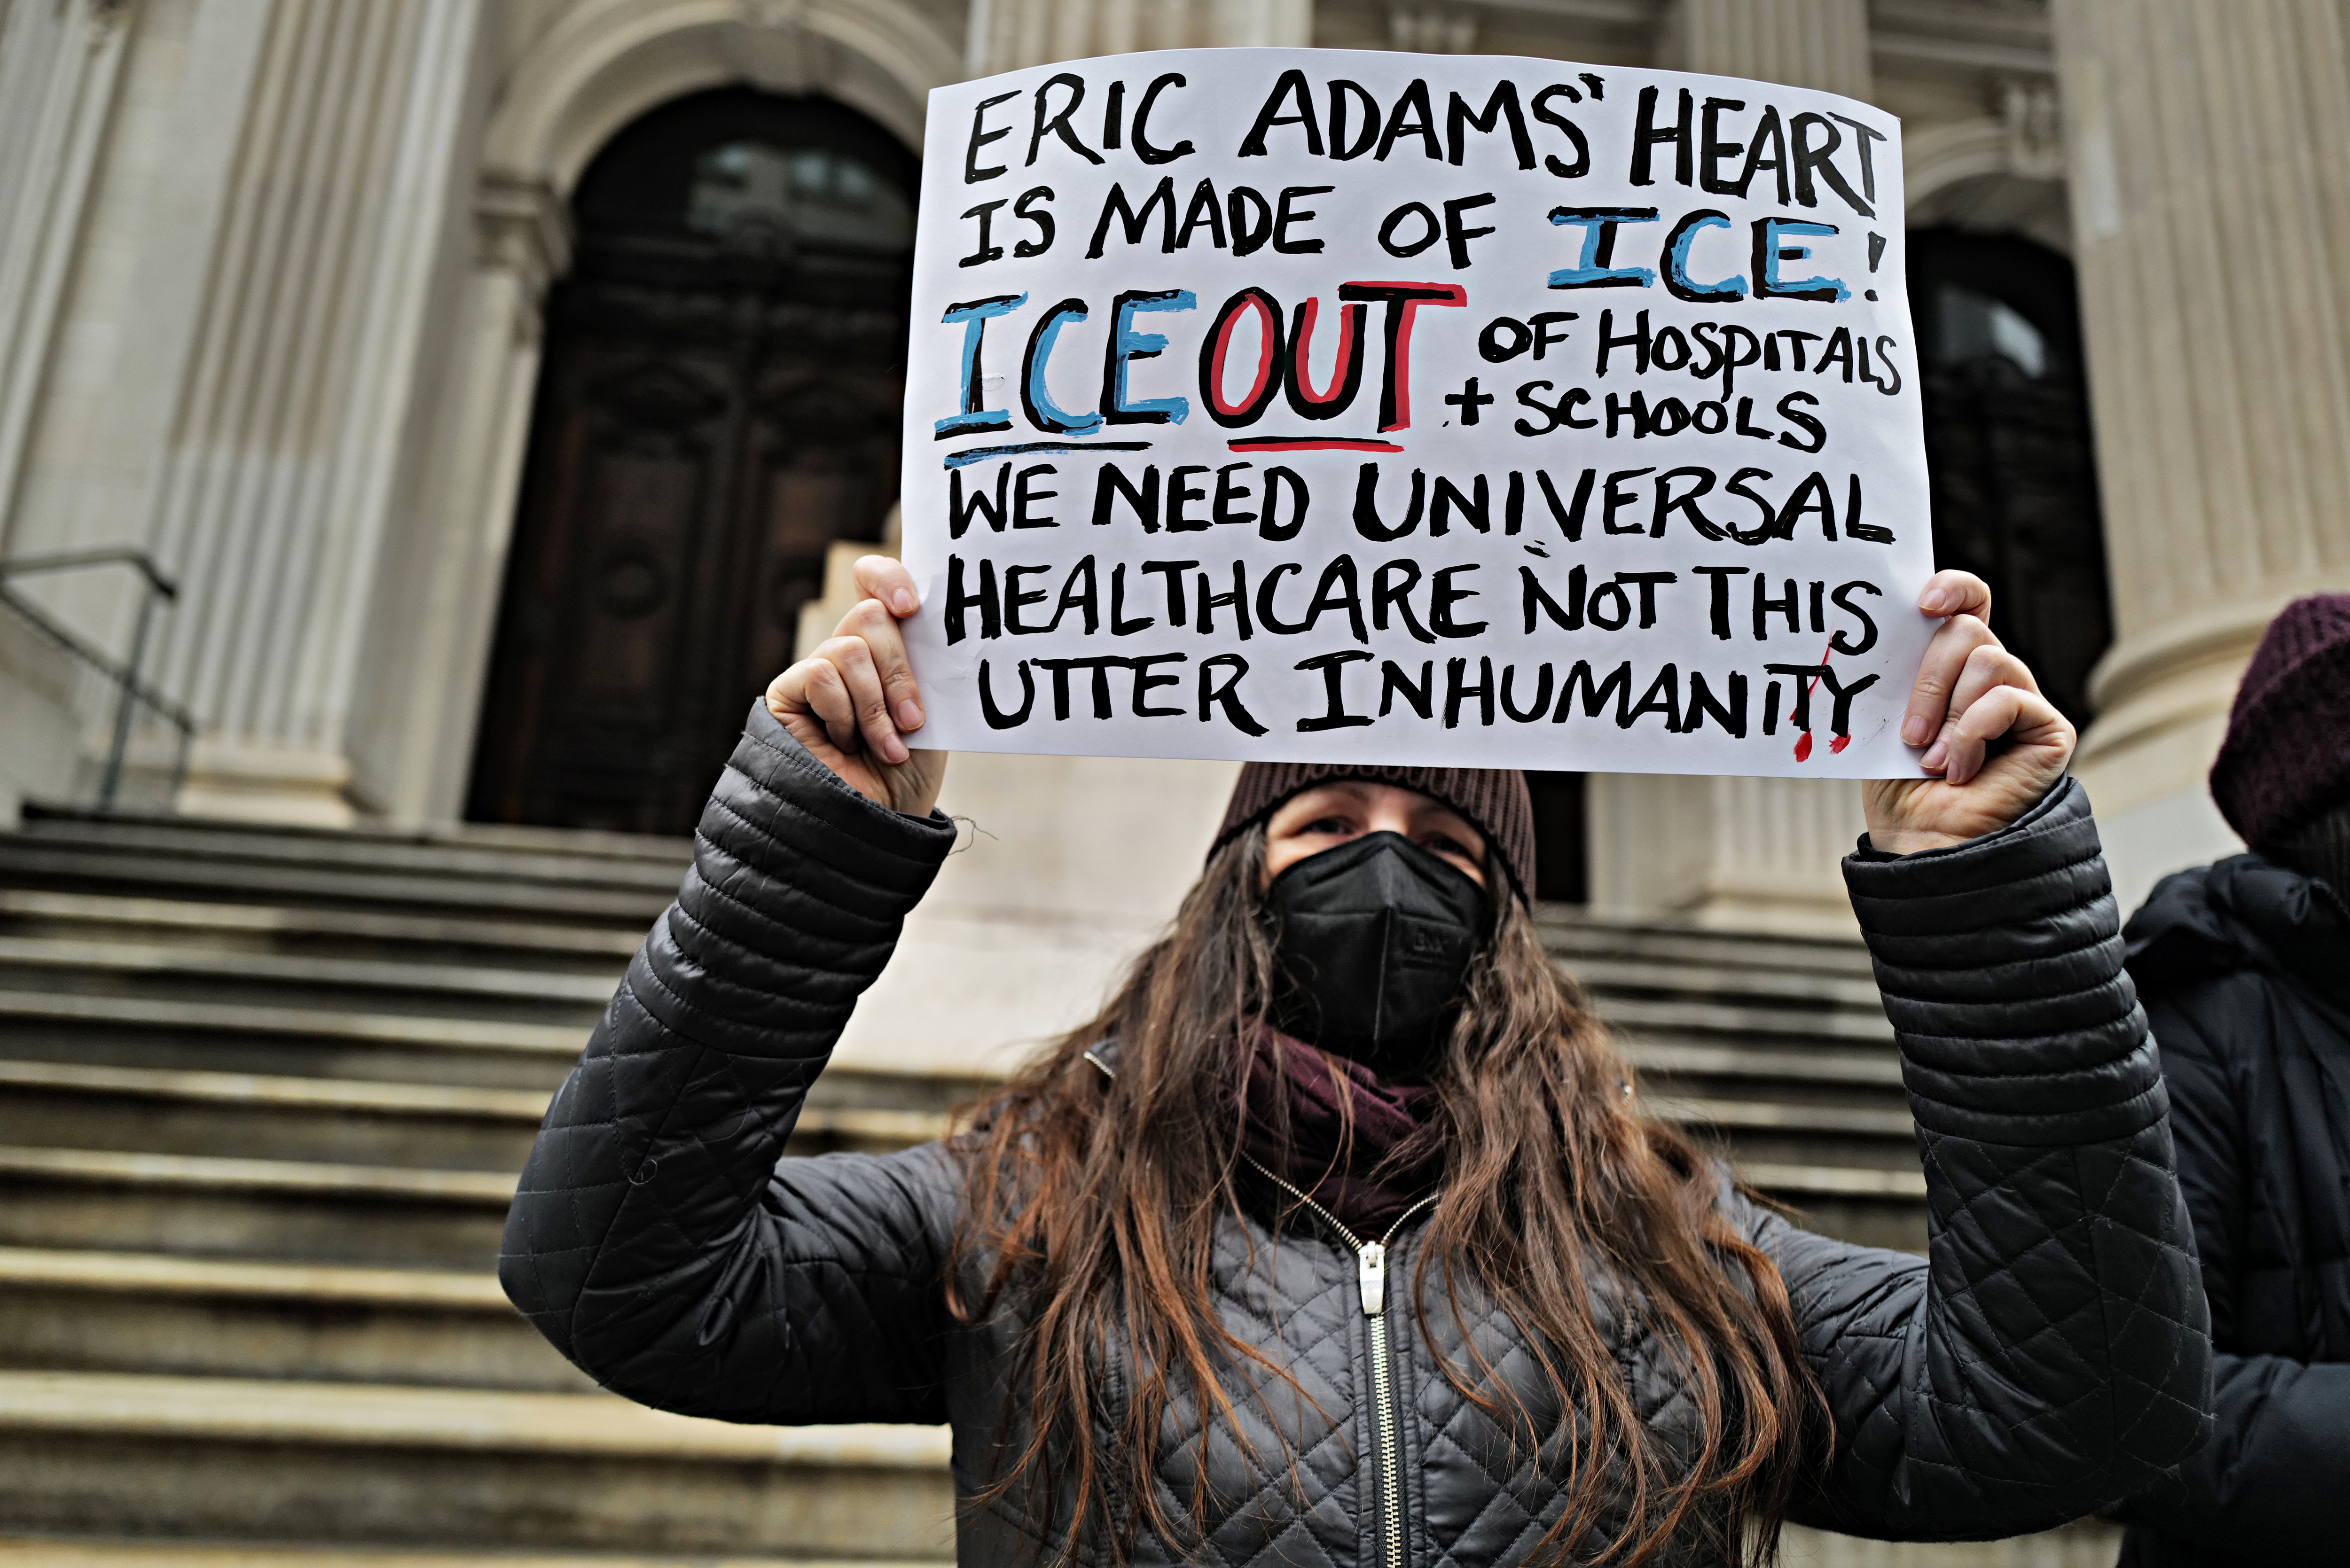 ERIC ADAMS' HEART
IS MADE OF ICE!
ICE OUT OF HOSPITALS
+ SCHOOLS
WE NEED UNIVERSAL
HEALTHCARE NOT THIS
UTTER INHUMANITY